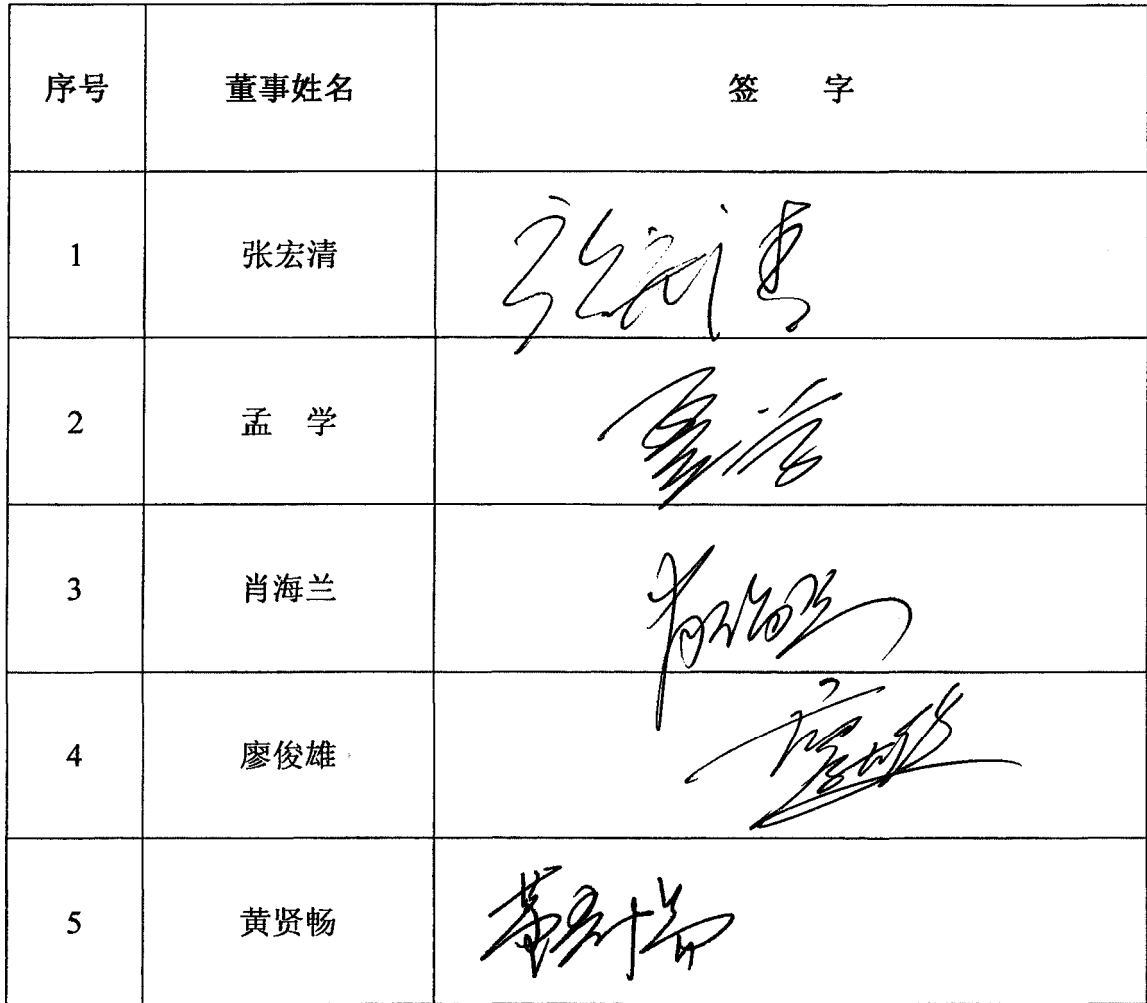 序号 董事姓名 签 字
1 张宏清 张宏清
2 孟 学 孟学
3 肖海兰 肖海兰
4 廖俊雄 廖俊雄
5 黄贤畅 黄贤畅